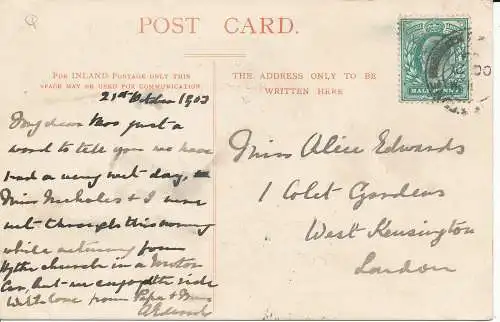 POST CARD.
FOR INLAND POSTAGE ONLY THIS
SPACE MAY BE USED FOR COMMUNICATION
THE ADDRESS ONLY TO BE
WRITTEN HERE
HALFPENNY
21st October 1903
My dear just a
word to tell you we have
had a very wet day,
Miss Nicholes & I were
wet through this morning
while returning from
Hythe church in a Motor
Car, but we enjoyed the ride
With love from Papa &
Miss Alice Edwards
1 Colet Gardens
West Kensington
London